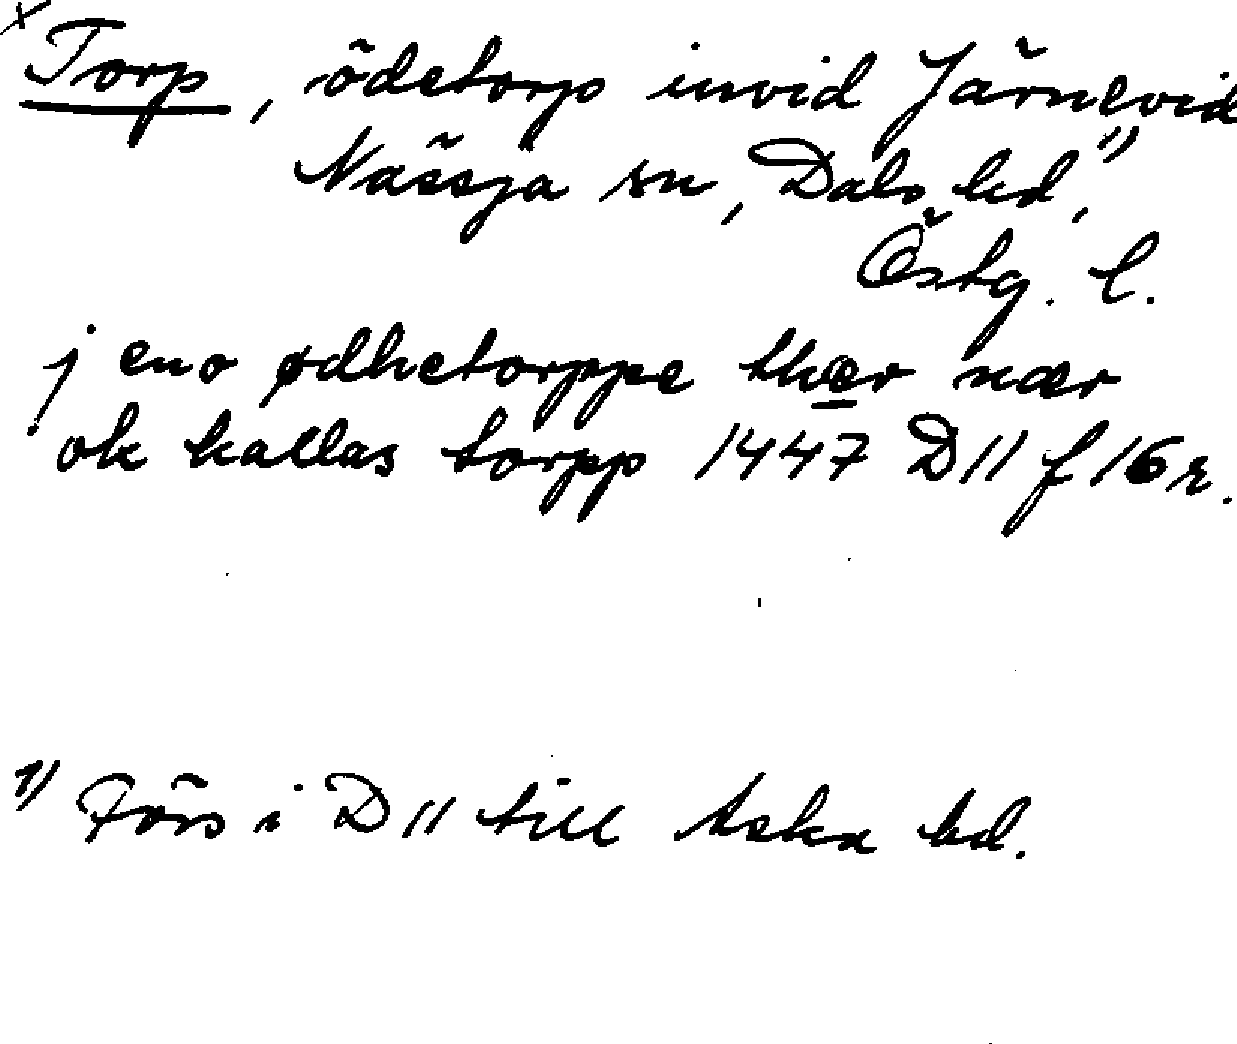 x Torp, ödetorp invid Järnevid
Nässja sn, Dals hd,¹⁾
Östg. l.
j eno ødhetorppe thær nær
ok kallas torpp 1447 D11 f 16 r.
1) Förs i D11 till Aska hd.